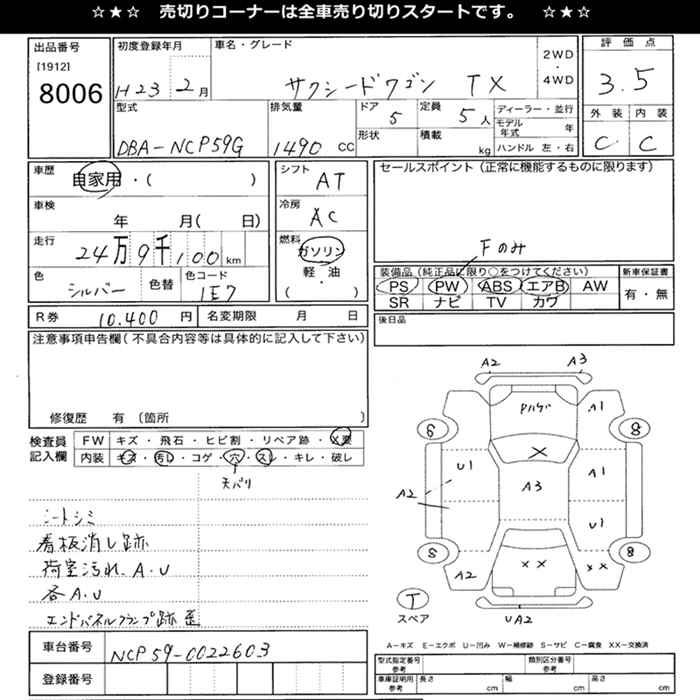 ☆★☆ 売切りコーナーは全車売り切りスタートです。 ☆★☆
出品番号 初度登録年月 車名・グレード 評価点
[1912]
8006
H23 2月 サクシードワゴン TX 2WD・4WD 3.5
型式 排気量 ドア 定員 ディーラー・並行 外装 内装
DBA-NCP59G 1490 CC 5 5人 モデル年式 年 C C
形状 積載 kg ハンドル 左・右
車歴 自家用・( ) シフト AT セールスポイント(正常に機能するものに限ります)
車検 年 月( 日) 冷房 AC
走行 24万9千100km 燃料 ガソリン・軽・油 ( )
Fのみ
色 シルバー 色替 色コード 1E7
装備品(純正品に限り○をつけてください) 新車保証書
PS PW ABS エアB AW 有・無
SR ナビ TV カワ
R券 10.400 円 名変期限 月 日 後日品
注意事項申告欄(不具合内容等は具体的に記入して下さい)
修復歴 有(箇所 )
検査員記入欄 FW キズ・飛石・ヒビ割・リペア跡・X要
内装 キズ・汚れ・コゲ・穴・スレ・キレ・破レ
天バリ
シートシミ
看板消し跡
荷室汚れ、A・U
各A・U
エンドパネルクランプ跡 歪
車台番号 NCP59-0022603
登録番号
A2 A3
Pハゲ A1
6 8
X
U1 A3 A1
A2 U1
S 8
A2 XX XX
T
スペア UA2
A-キズ E-エクボ U-凹み W-補修跡 S-サビ C-腐食 XX-交換済
型式指定番号 参考 類別区分番号 参考
車庫証明用 参考 長さ cm 幅 cm 高さ cm